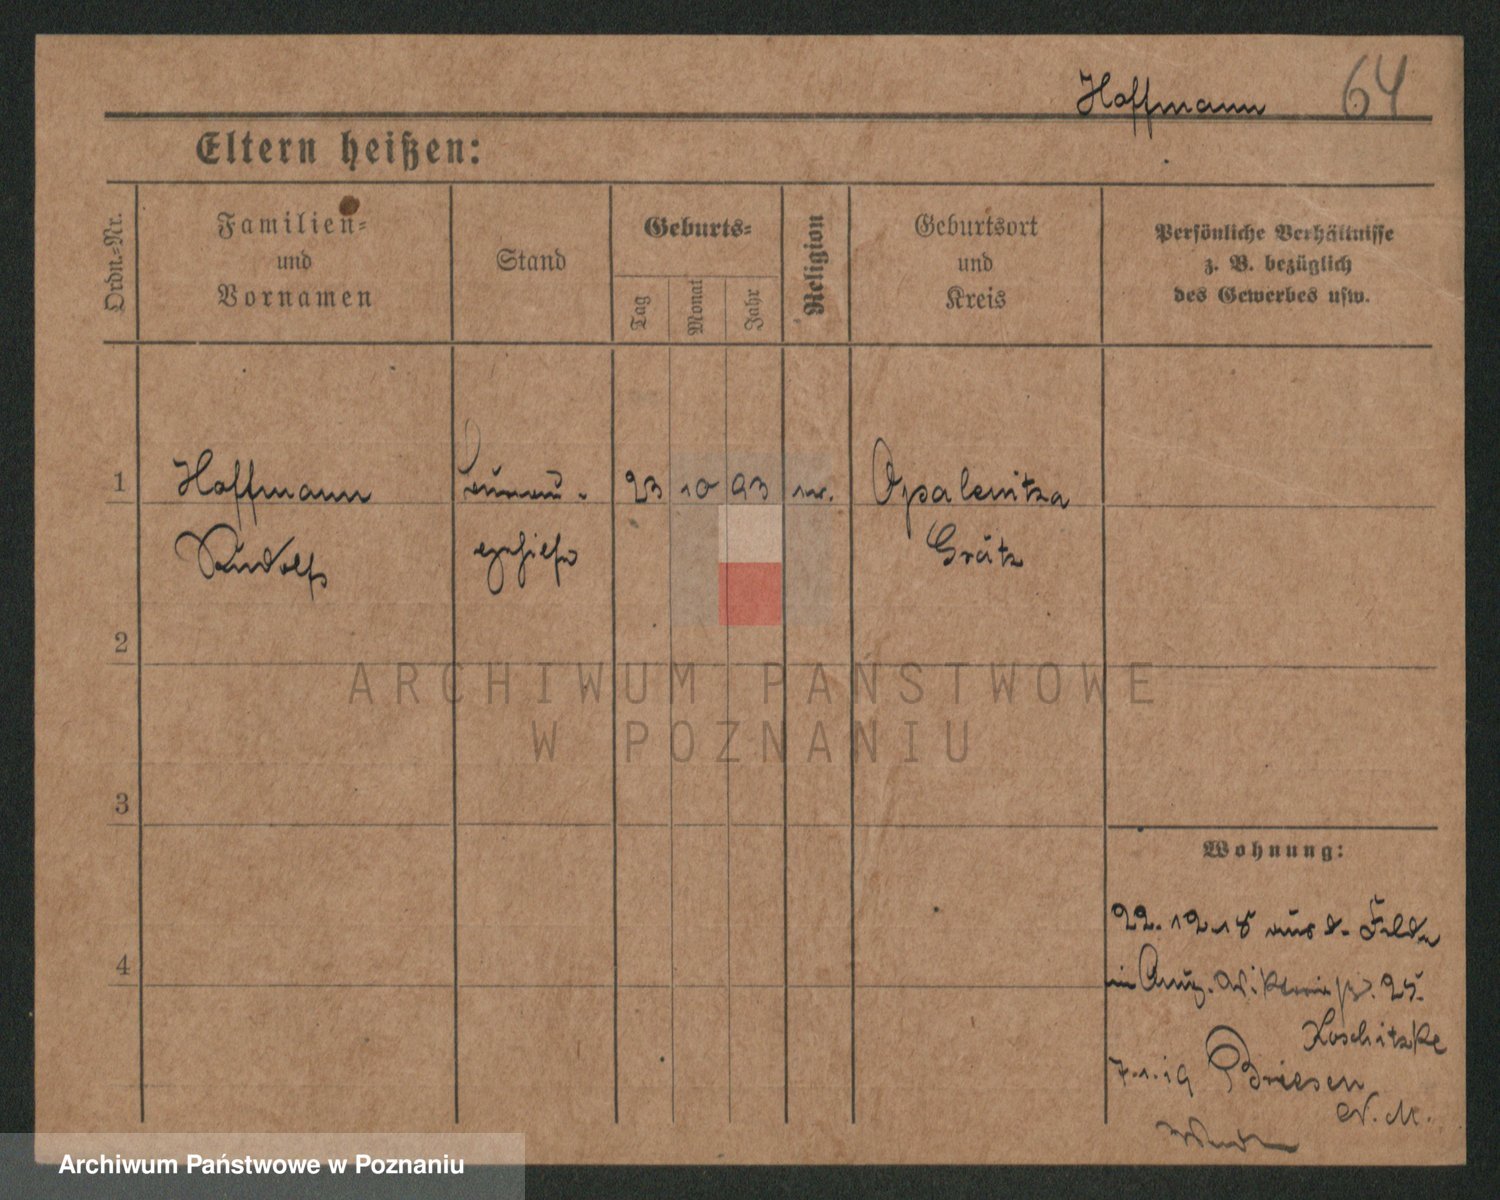 Hoffmann 64
Eltern heißen:
Ordn.-Nr.
Familien-
und
Vornamen
Stand
Geburts-
Tag
Monat
Jahr
Religion
Geburtsort
und
Kreis
Persönliche Verhältnisse
z. B. bezüglich
des Gewerbes usw.
1 Hoffmann 23 10 93 Opalenitza
Rudolf gehilfe Grätz
2
ARCHIWUM PAŃSTWOWE
W POZNANIU
3
Wohnung:
22.12.18 aus d. Felde
4
25.
Koschitzke
7.1.19 Briesen
Archiwum Państwowe w Poznaniu